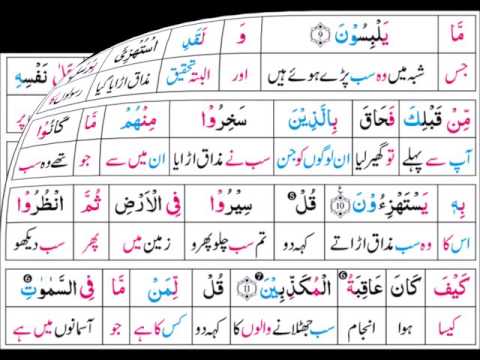 مَّا يَلْبِسُوْنَ ۹ وَ لَقَدِ اسْتُهْزِئَ
جس شبہ میں وہ سب پڑے ہوئے ہیں اور البتہ تحقیق مذاق اڑایا گیا
نَفْسِهِ
مِّنْ قَبْلِكَ فَحَاقَ بِالَّذِيْنَ سَخِرُوْا مِنْهُمْ مَّا كَانُوْا
آپ سے پہلے تو گھیر لیا ان لوگوں کو جن سب نے مذاق اڑایا ان میں سے جو تھے وہ سب پر
بِهٖ يَسْتَهْزِءُوْنَ ۱۰ قُلْ ۵ سِيْرُوْا فِي الْاَرْضِ ثُمَّ انْظُرُوْا
اس کا وہ سب مذاق اڑاتے کہہ دو تم سب چلو پھرو زمین میں پھر سب دیکھو
كَيْفَ كَانَ عَاقِبَةُ ۶ الْمُكَذِّبِيْنَ ۷ ۱۱ قُلْ لِّمَنْ مَّا فِي السَّمٰوٰتِ ۶
کیسا ہوا انجام سب جھٹلانے والوں کا کہہ دو کس کا ہے جو آسمانوں میں ہے